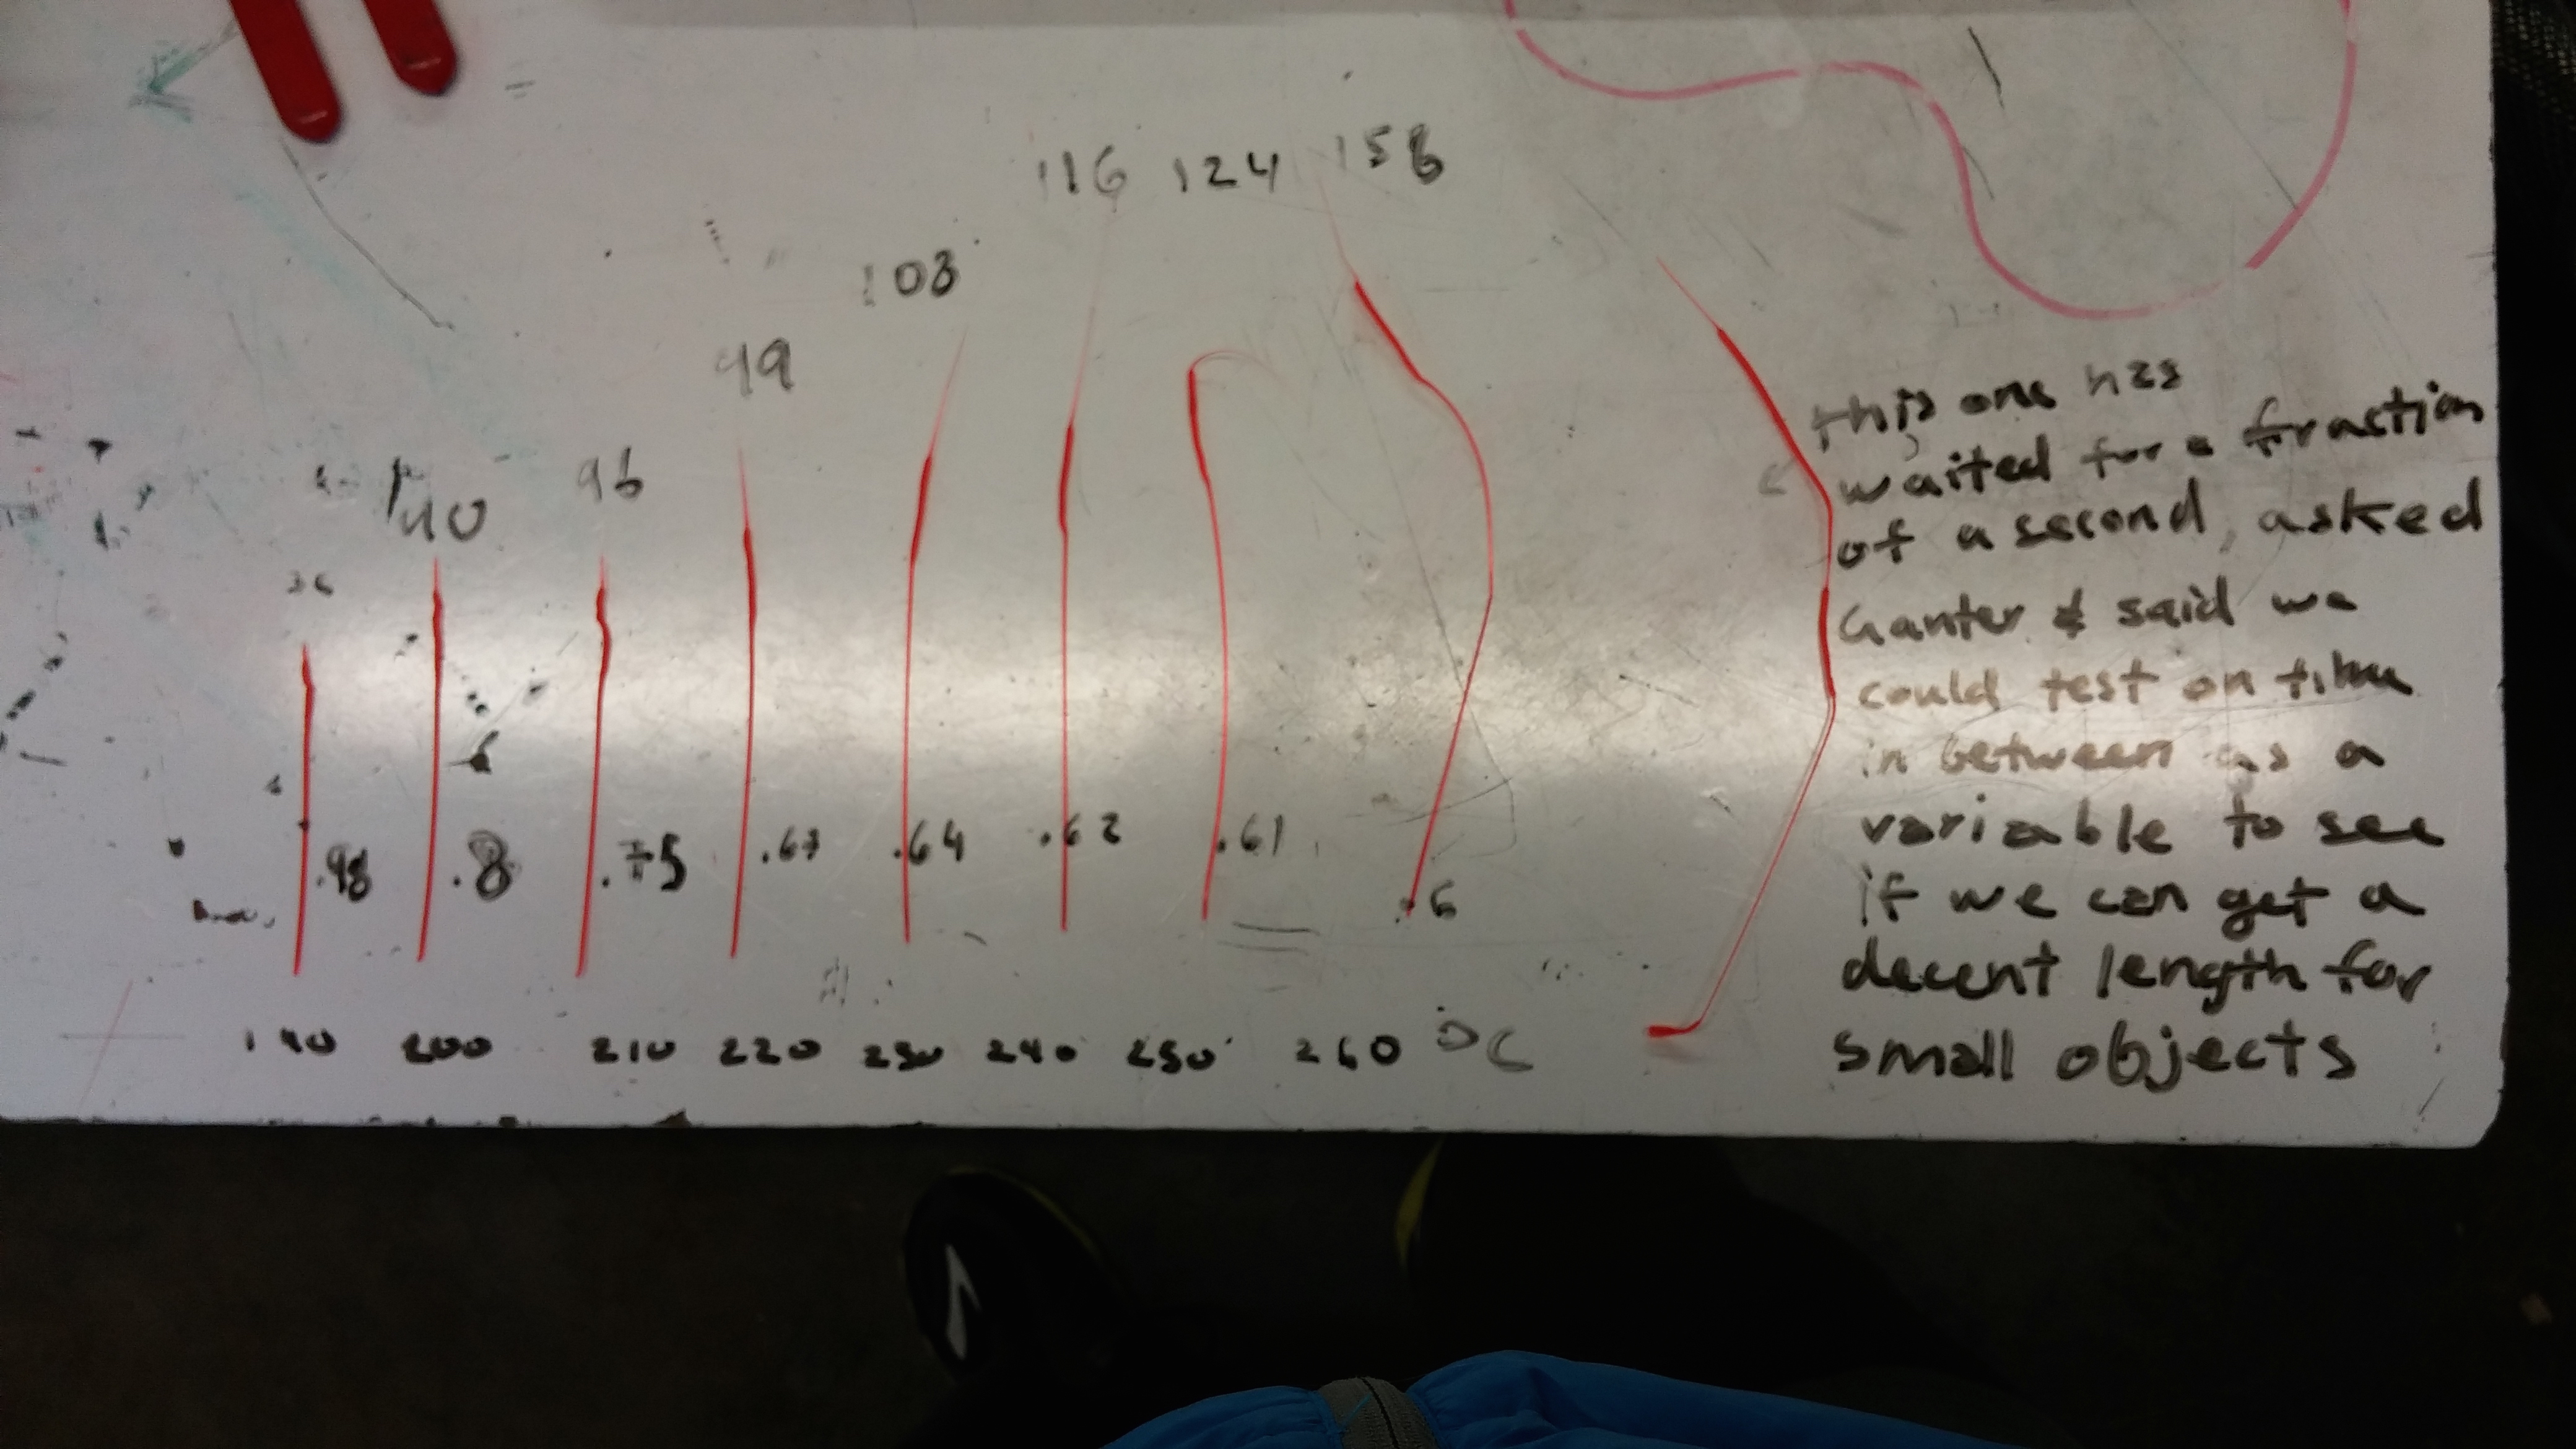 116 124 156
108
99
96
.98 .8 .75 .67 .64 .62 .61 .6
190 200 210 220 230 240 250 260 °C
this one has
waited for a fraction
of a second, asked
Ganter & said we
could test on time
in between as a
variable to see
if we can get a
decent length for
small objects